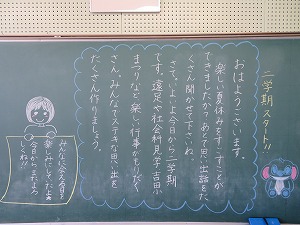 二学期スタート!!
おはようございます。
楽しい夏休みをすごすことが
できましたか?あとで思い出話をた
くさん聞かせて下さいね
さて、いよいよ今日から二学期
です。遠足や社会科見学、吉田ふ
まつりなど楽しい行事がもりだく
さん。みんなでステキな思い出を
たくさん作りましょう。
みんなに会える日を
楽しみにしてたよ
今日から、またよろ
しくね!!